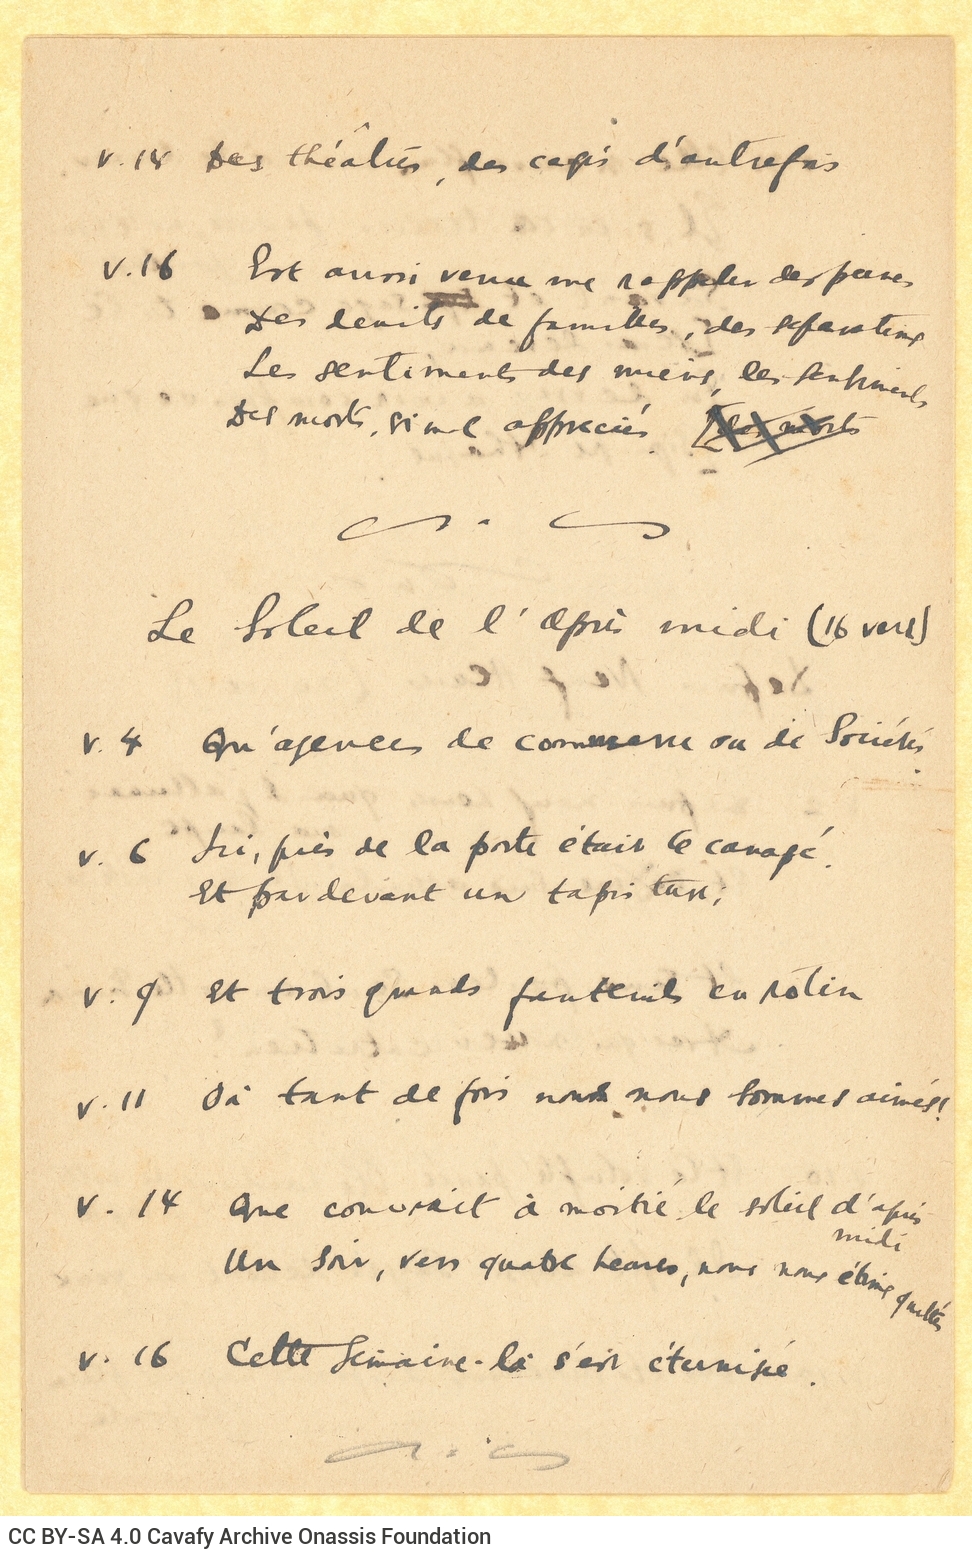 v. 14 Des théâtres, des cafés d'autrefois
v. 16 Est aussi venue me rappeler des peines
Des deuils de familles, des séparations
Les sentiments des miens, les sentiments
Des morts, si mal appréciés.
Le Soleil de l'après midi (16 vers)
v. 4 Qu'agences de commerce ou de Sociétés.
v. 6 Ici, près de la porte était le canapé.
Et par devant un tapis turc;
v. 9 Et trois grands fauteuils en rotin
v. 11 Où tant de fois nous nous sommes aimés!
v. 14 Que couvrait à moitié le soleil d'après
midi
Un soir, vers quatre heures, nous nous étions quittés
v. 16 Cette Semaine-là s'est éternisée.
CC BY-SA 4.0 Cavafy Archive Onassis Foundation